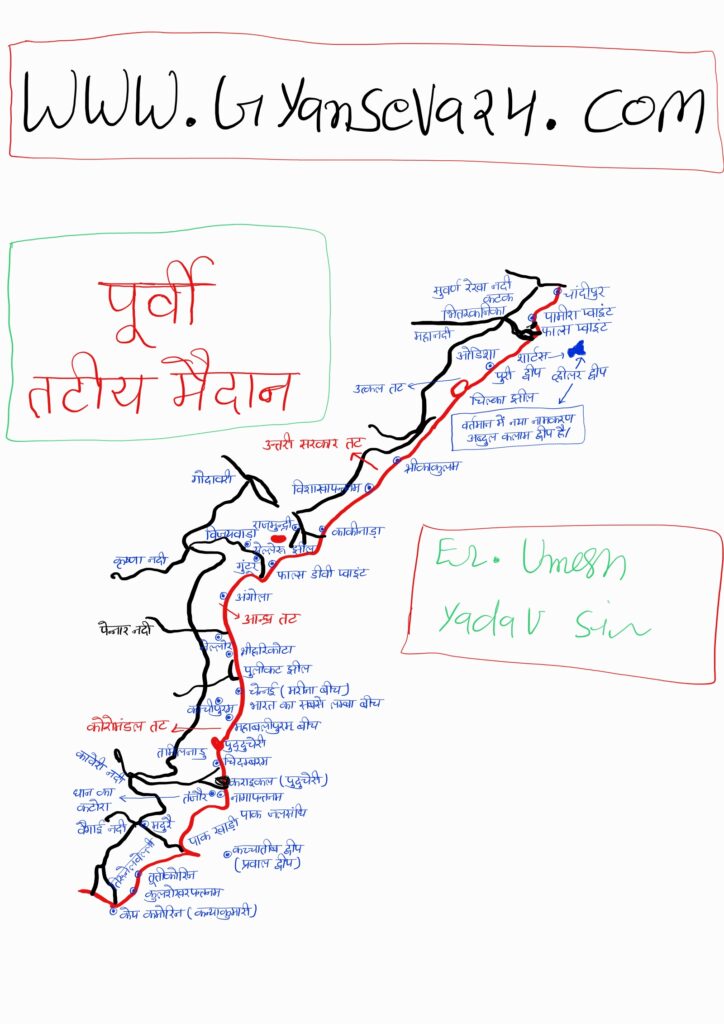 WWW.Gyanseva24.com
पूर्वी
तटीय मैदान
सुवर्ण रेखा नदी
कटक
भितरकनिका
महानदी
चांदीपुर
पामीरा प्वाइंट
फाल्स प्वाइंट
ओडिशा
शार्टस
पुरी द्वीप
व्हीलर द्वीप
उत्कल तट
चिल्का झील
वर्तमान में नया नामकरण
अब्दुल कलाम द्वीप है।
उत्तरी सरकार तट
श्रीकाकुलम
विशाखापत्तनम
गोदावरी
राजमुन्द्री
काकीनाड़ा
विजयवाड़ा
झील
गुंटूर
कृष्णा नदी
फाल्स डीवी प्वाइंट
Er. Umesh
Yadav Sir
अंगोला
आन्ध्र तट
पेन्नार नदी
नेल्लोर
श्रीहरिकोटा
पुलीकट झील
चेन्नई (मरीना बीच)
कांचीपुरम्
भारत का सबसे लम्बा बीच
कोरोमंडल तट
महाबलीपुरम् बीच
तामिलनाडु
पुदुदुचेरी
चिदम्बरम
कावेरी नदी
कराइकल (पुदुचेरी)
धान का
कटोरा
तंजौर
नागापत्तनम
वैगाई नदी
मदुरै
पाक खाड़ी
पाक जलसंधि
कच्चातीब द्वीप
(प्रवाल द्वीप)
तिरुनेलवेल्ली
तूतीकोरिन
कुलशेखरपत्तनम
केप कमोरिन (कन्याकुमारी)